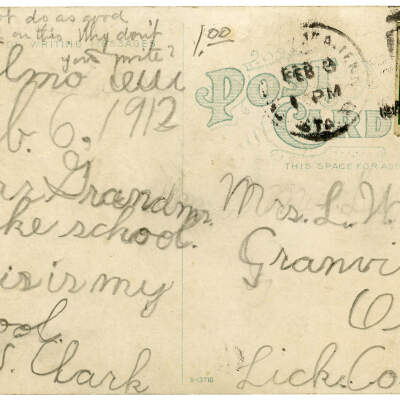 do as good
on this. Why don't
you write?
WRITING MESSAGES
1912
b. 6,
Grandma.
ke school.
is is my
ool,
S. Clark
1.00
FEB 8
1 PM
STA
POST
CARD
THIS SPACE FOR AD
Mrs. L. W.
Granvi
O
Lick. Co